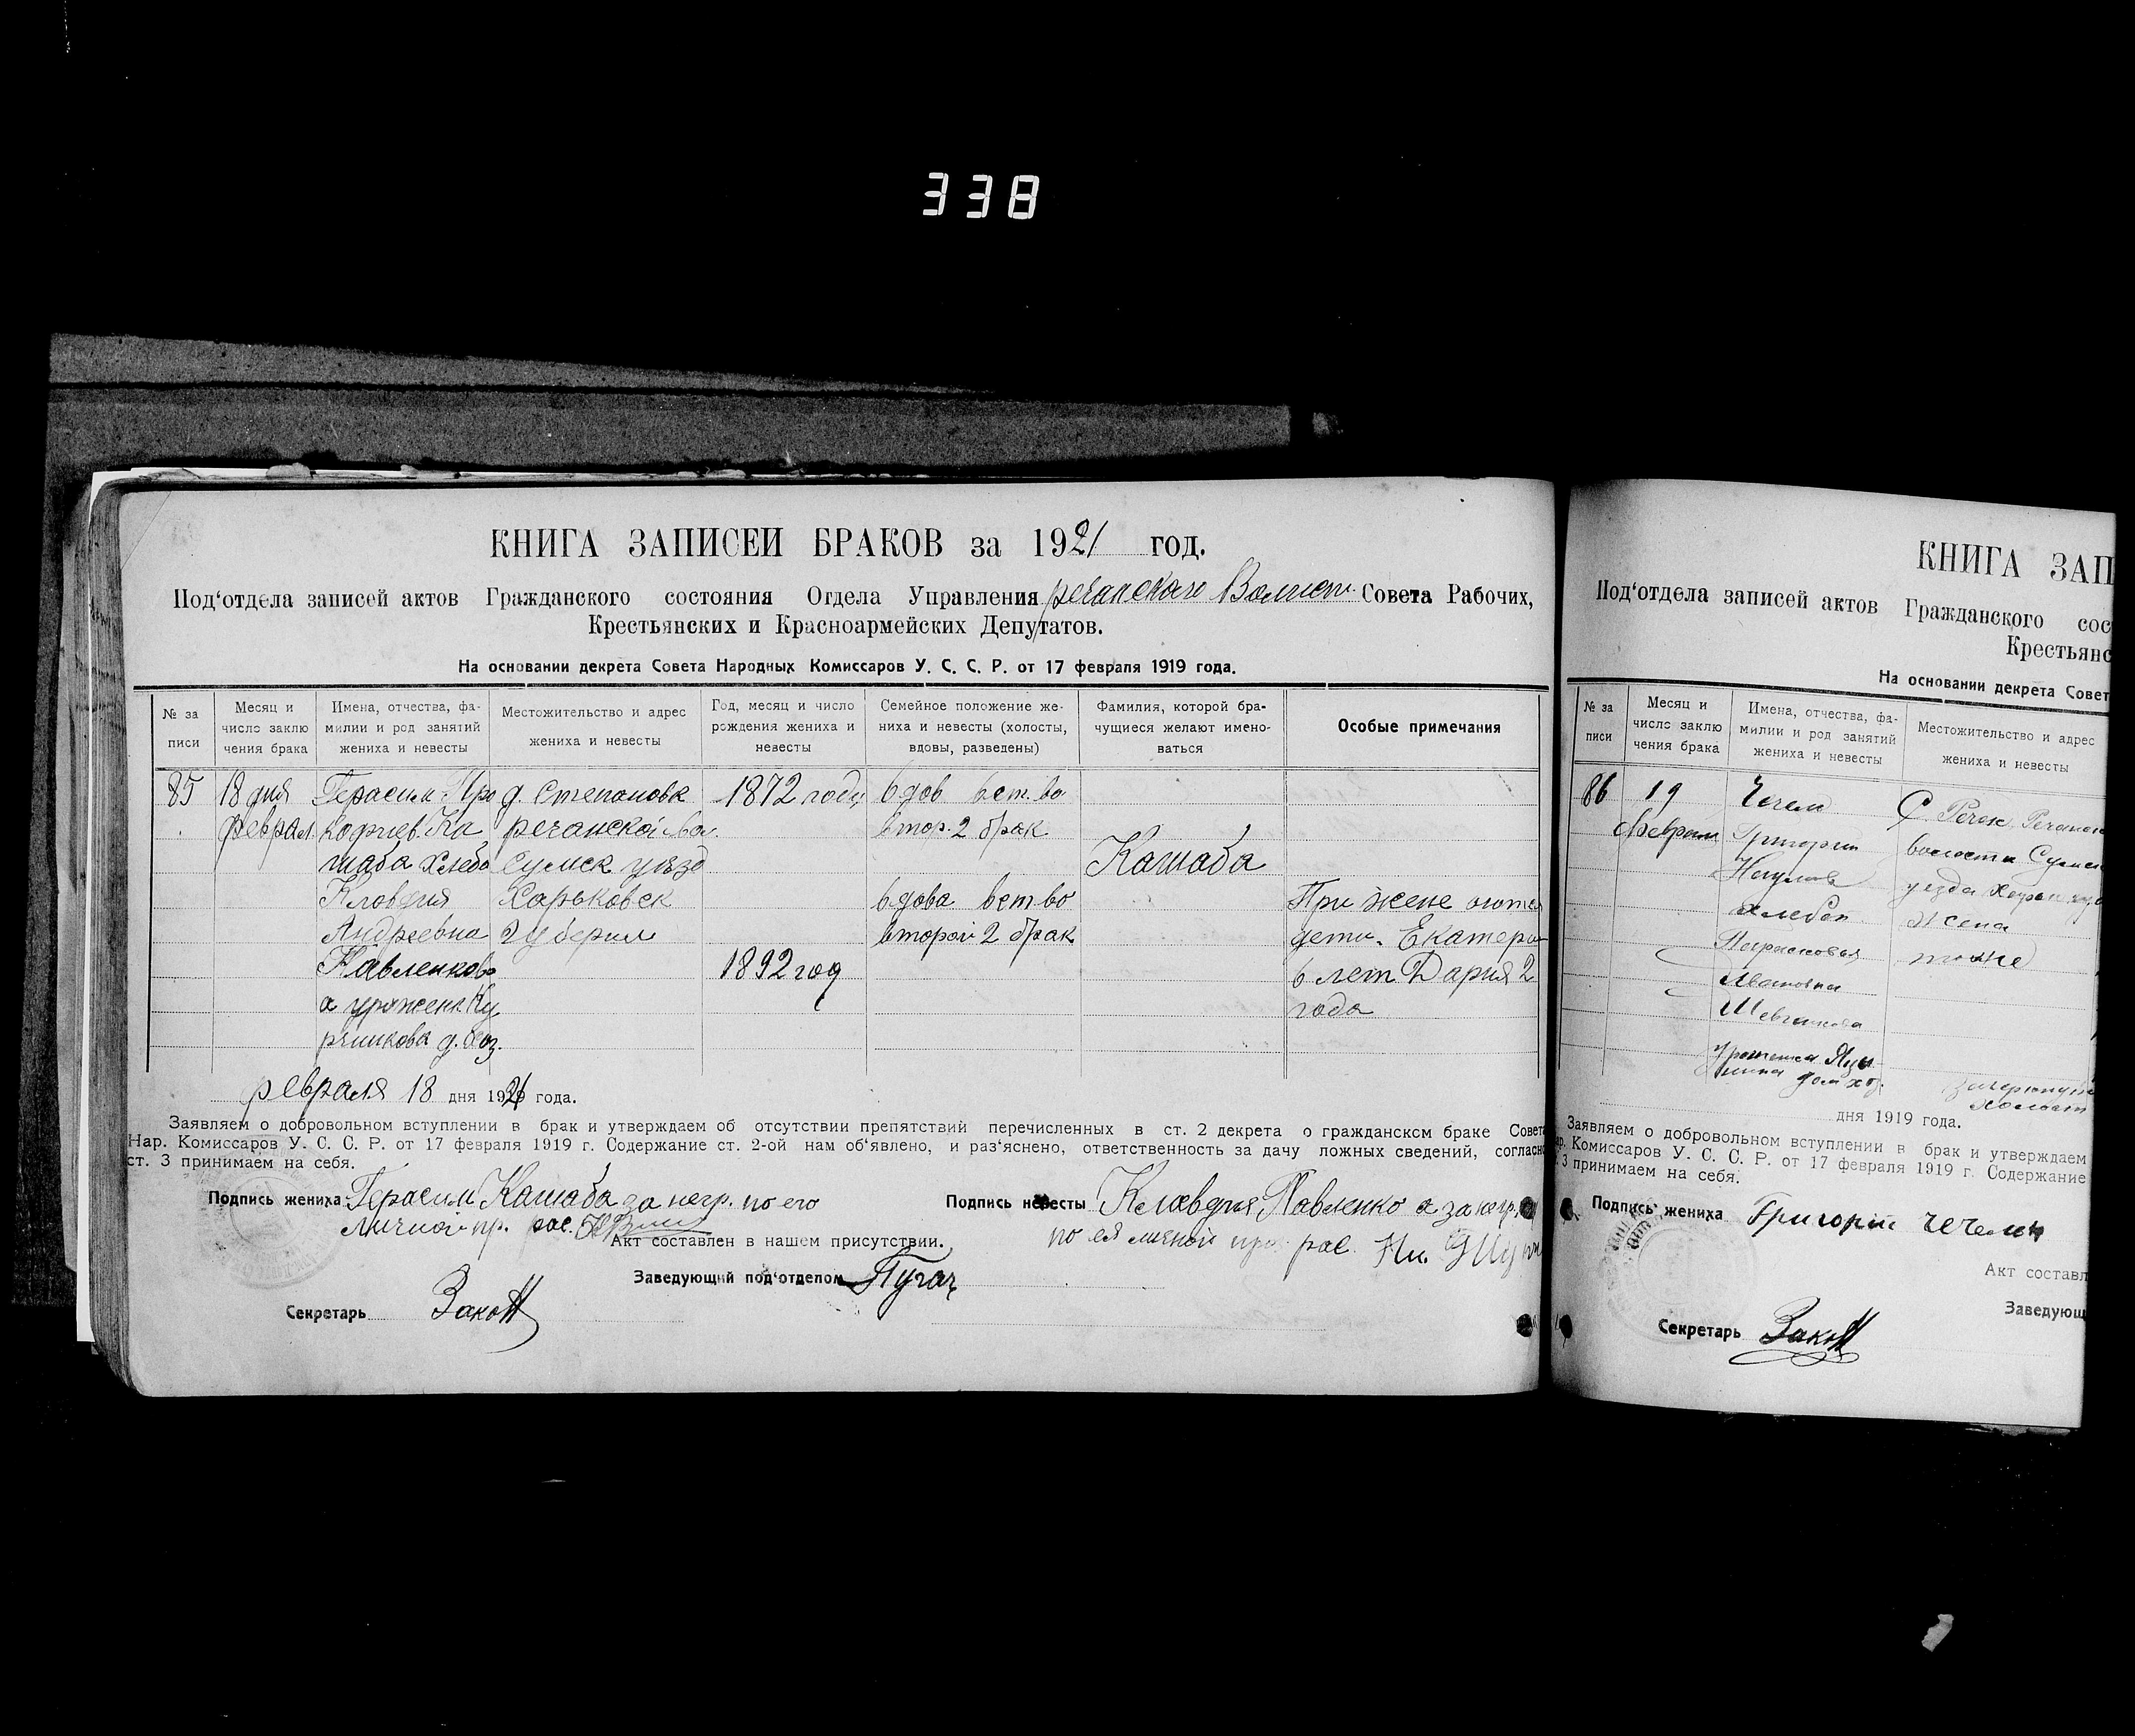 338
КНИГА ЗАПИСЕЙ БРАКОВ за 1921 год.
Под‘отдела записей актов Гражданского состояния Отдела Управления речанского Волист. Совета Рабочих,
Крестьянских и Красноармейских Депутатов.
На основании декрета Совета Народных Комиссаров У. С. С. Р. от 17 февраля 1919 года.
№ за писи
Месяц и число заклю чения брака
Имена, отчества, фа- милии и род занятий жениха и невесты
Местожительство и адрес жениха и невесты
Год, месяц и число рождения жениха и невесты
Семейное положение же- ниха и невесты (холосты, вдовы, разведены)
Фамилия, которой бра- чущиеся желают имено- ваться
Особые примечания
85 18 дня Герасим Про д. Степановк 1872 году вдов вст. во
феврал кофиев. Ка речанской во. втор. 2 брак
шаба хлеб Сумск уезд Кашаба
Клавдия Харьковск вдова вст во При жене
Андреевна губерии второй 2 брак дети. Екатери
Павленково 1892 год 6 лет Дария 2
а урожен. Ку года
рячикова д.
февраля 18 дня 1921 года.
Заявляем о добровольном вступлении в брак и утверждаем об отсутствии препятствий перечисленных в ст. 2 декрета о гражданском браке Совета
Нар. Комиссаров У. С. С. Р. от 17 февраля 1919 г. Содержание ст. 2-ой нам об‘явлено, и раз‘яснено, ответственность за дачу ложных сведений, согласно
ст. 3 принимаем на себя.
Подпись жениха Герасим Кашаба за негр. по его
личной пр. рас.
Подпись невесты Клавдия Павленко а за негр.
по ея личной пр. рас.
Акт составлен в нашем присутствии.
Заведующий под‘отделом Пугач
Секретарь
КНИГА ЗАП
Под‘отдела записей актов Гражданского сос
Крестьянс
На основании декрета Совет
№ за писи
Месяц и число заклю чения брака
Имена, отчества, фа- милии и род занятий жениха и невесты
Местожительство и адрес жениха и невесты
86 19 Чечель С. Речек, Речанск
феврал Григорий волости Сумск
Наумов уезда
хлебоп жена
Парасковья тоже
Ивановна
Шевченкова
Уроженка
дом хоз.
дня 1919 года.
Заявляем о добровольном вступлении в брак и утверждаем
ар. Комиссаров У. С. С. Р. от 17 февраля 1919 г. Содержание
3 принимаем на себя.
Подпись жениха Григорій Чечель
Акт составл
Заведующ
Секретарь